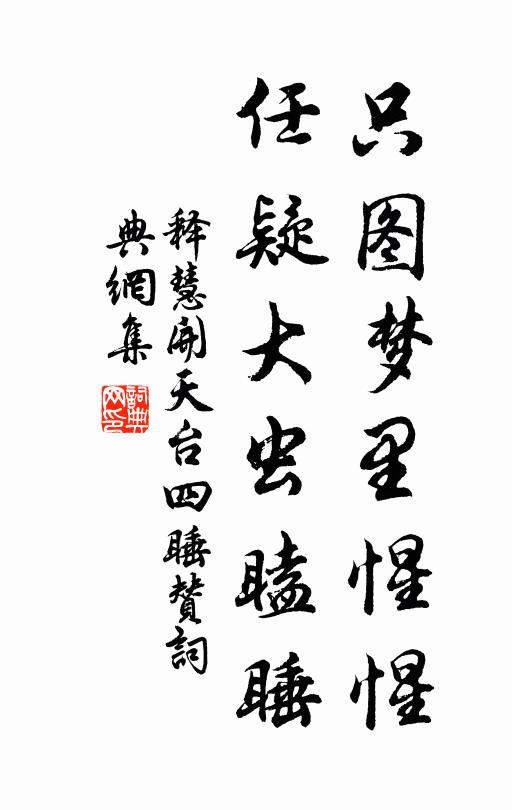 只图梦里惺惺
任疑大虫瞌睡
释慧開天台四睡贊詞
典網集
詞典網印